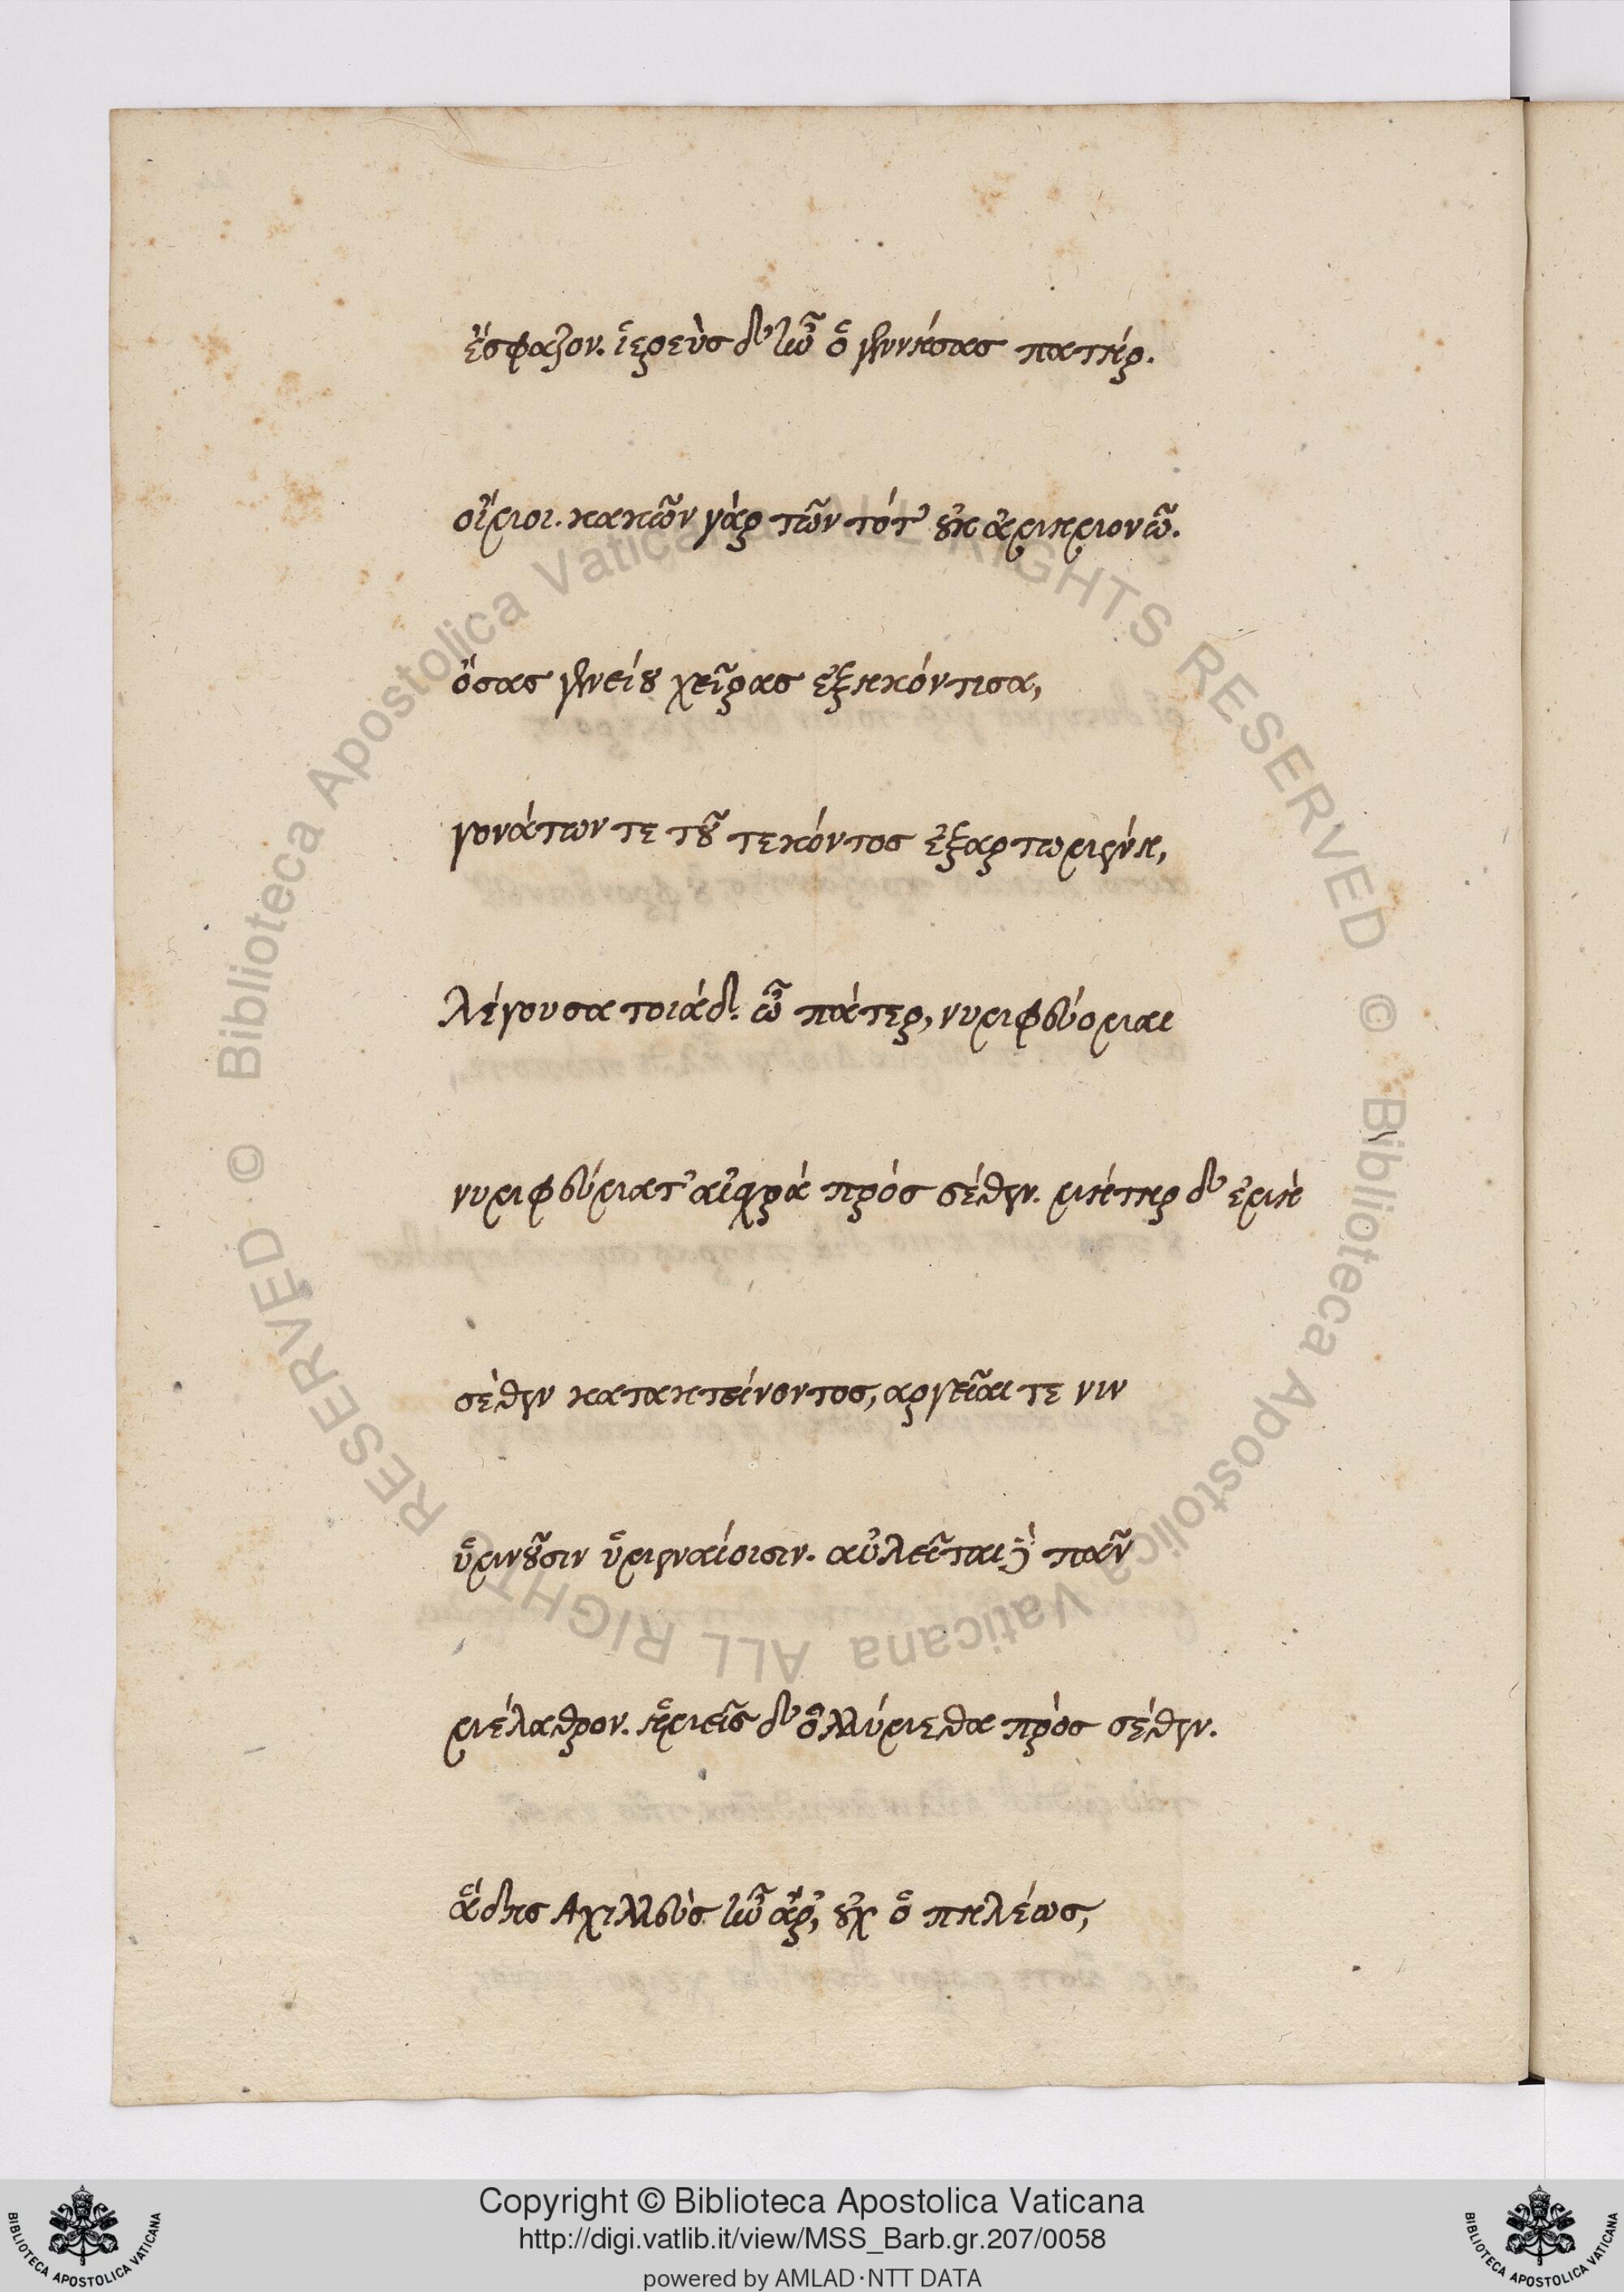 ἔσφαζον. ἱερεὺς δ' ἦν ὁ γεννήσας πατήρ.
οἴμοι. κακῶν γὰρ τῶν τότ' οὐκ ἀμνημονῶ.
ὅσας γενείου χεῖρας ἐξηκόντισα,
γονάτων τε τοῦ τεκόντος ἐξαρτωμένη,
λέγουσα τοιάδ'. ὦ πάτερ, νυμφεύομαι
νυμφεύματ' αἰσχρὰ πρὸς σέθεν. μήτηρ δ' ἐμὲ
σέθεν κατακτείνοντος, αργεῖαι τε νιν
ὑμνοῦσιν ὑμεναίοισιν. αὐλεῖται δὲ πᾶν
μέλαθρον. ἡμεῖς δ' ὀλλύμεθα πρὸς σέθεν.
ἅδης Αχιλλεὺς ἦν ἄρ', οὐχ ὁ πηλέως,
Copyright © Biblioteca Apostolica Vaticana
http://digi.vatlib.it/view/MSS_Barb.gr.207/0058
powered by AMLAD·NTT DATA
© Biblioteca Apostolica Vaticana ALL RIGHTS RESERVED
© Biblioteca Apostolica Vaticana ALL RIGHTS RESERVED
BIBLIOTECA APOSTOLICA VATICANA
BIBLIOTECA APOSTOLICA VATICANA